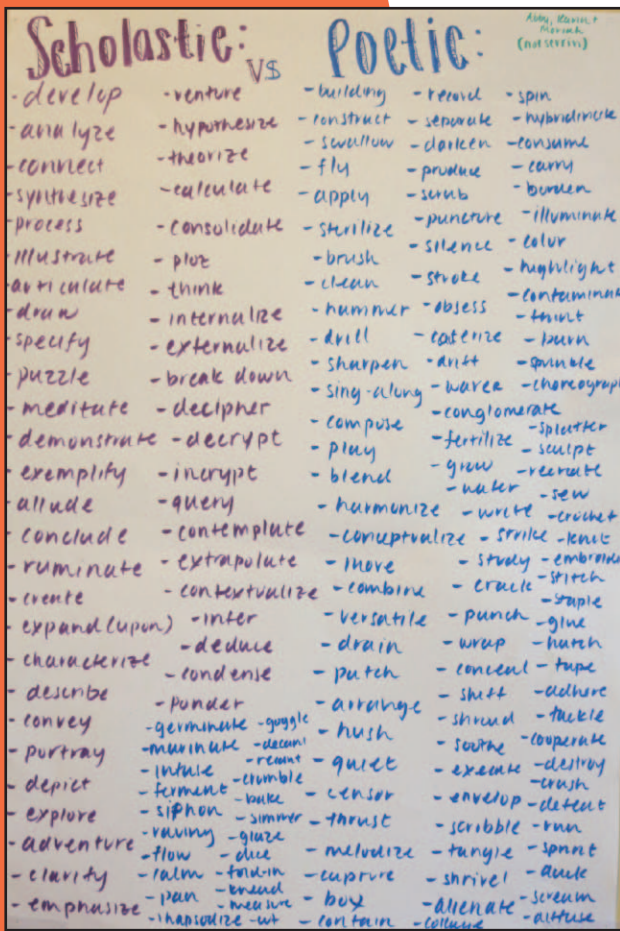 Scholastic:
vs
Poetic:
(not serrin)
- develop
- analyze
- connect
- synthesize
- process
- illustrate
- articulate
- draw
- specify
- puzzle
- meditate
- demonstrate
- exemplify
- allude
- conclude
- ruminate
- create
- expand (upon)
- characterize
- describe
- convey
- portray
- depict
- explore
- adventure
- clarify
- emphasize
- venture
- hypothesize
- theorize
- calculate
- consolidate
- plot
- think
- internalize
- externalize
- break down
- decipher
- decrypt
- incrypt
- query
- contemplate
- extrapolate
- contextualize
- infer
- deduce
- condense
- ponder
- germinate
- marinate
- infuse
- ferment
- siphon
- raving
- flow
- calm
- pan
- rhapsodize
- goggle
- decant
- recant
- crumble
- bake
- simmer
- glaze
- dice
- fold-in
- knead
- measure
- building
- construct
- swallow
- fly
- apply
- sterilize
- brush
- clean
- hammer
- drill
- sharpen
- sing-along
- compose
- play
- blend
- harmonize
- conceptualize
- move
- combine
- versatile
- drain
- patch
- arrange
- hush
- quiet
- censor
- thrust
- melodize
- capture
- box
- contain
- record
- separate
- darken
- produce
- scrub
- puncture
- silence
- stroke
- obsess
- drift
- conglomerate
- fertilize
- grow
- water
- write
- strike
- study
- crack
- punch
- wrap
- conceal
- shift
- shroud
- soothe
- execute
- envelop
- scribble
- tangle
- shrivel
- alienate
- collage
- spin
- consume
- carry
- burden
- illuminate
- color
- highlight
- contaminate
- burn
- sprinkle
- choreograph
- splatter
- sculpt
- recreate
- sew
- crochet
- knit
- embroider
- stitch
- staple
- glue
- hatch
- tape
- adhere
- tackle
- cooperate
- destroy
- crush
- defeat
- run
- sprint
- duck
- scream
- diffuse